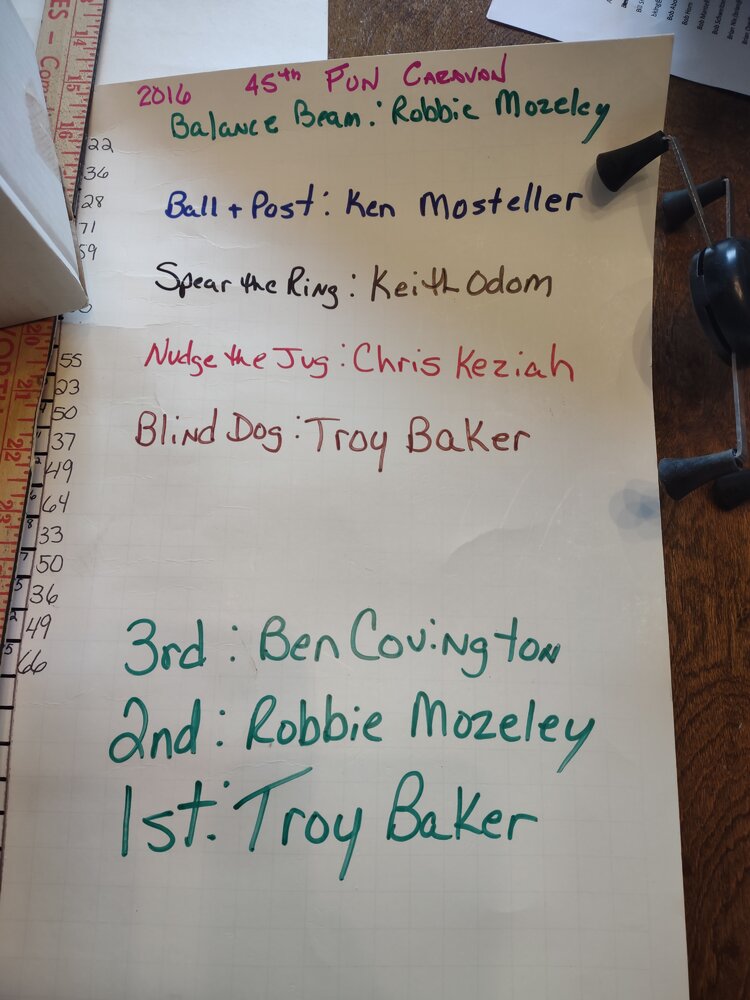 2016 45th FUN CARAVAN
Balance Beam: Robbie Mozeley
Ball + Post: Ken Mosteller
Spear the Ring: Keith Odom
Nudge the Jug: Chris Keziah
Blind Dog: Troy Baker
3rd: Ben Covington
2nd: Robbie Mozeley
1st: Troy Baker
22
36
28
71
59
55
23
50
37
49
64
33
50
36
49
66
15
16
20
21
22
23